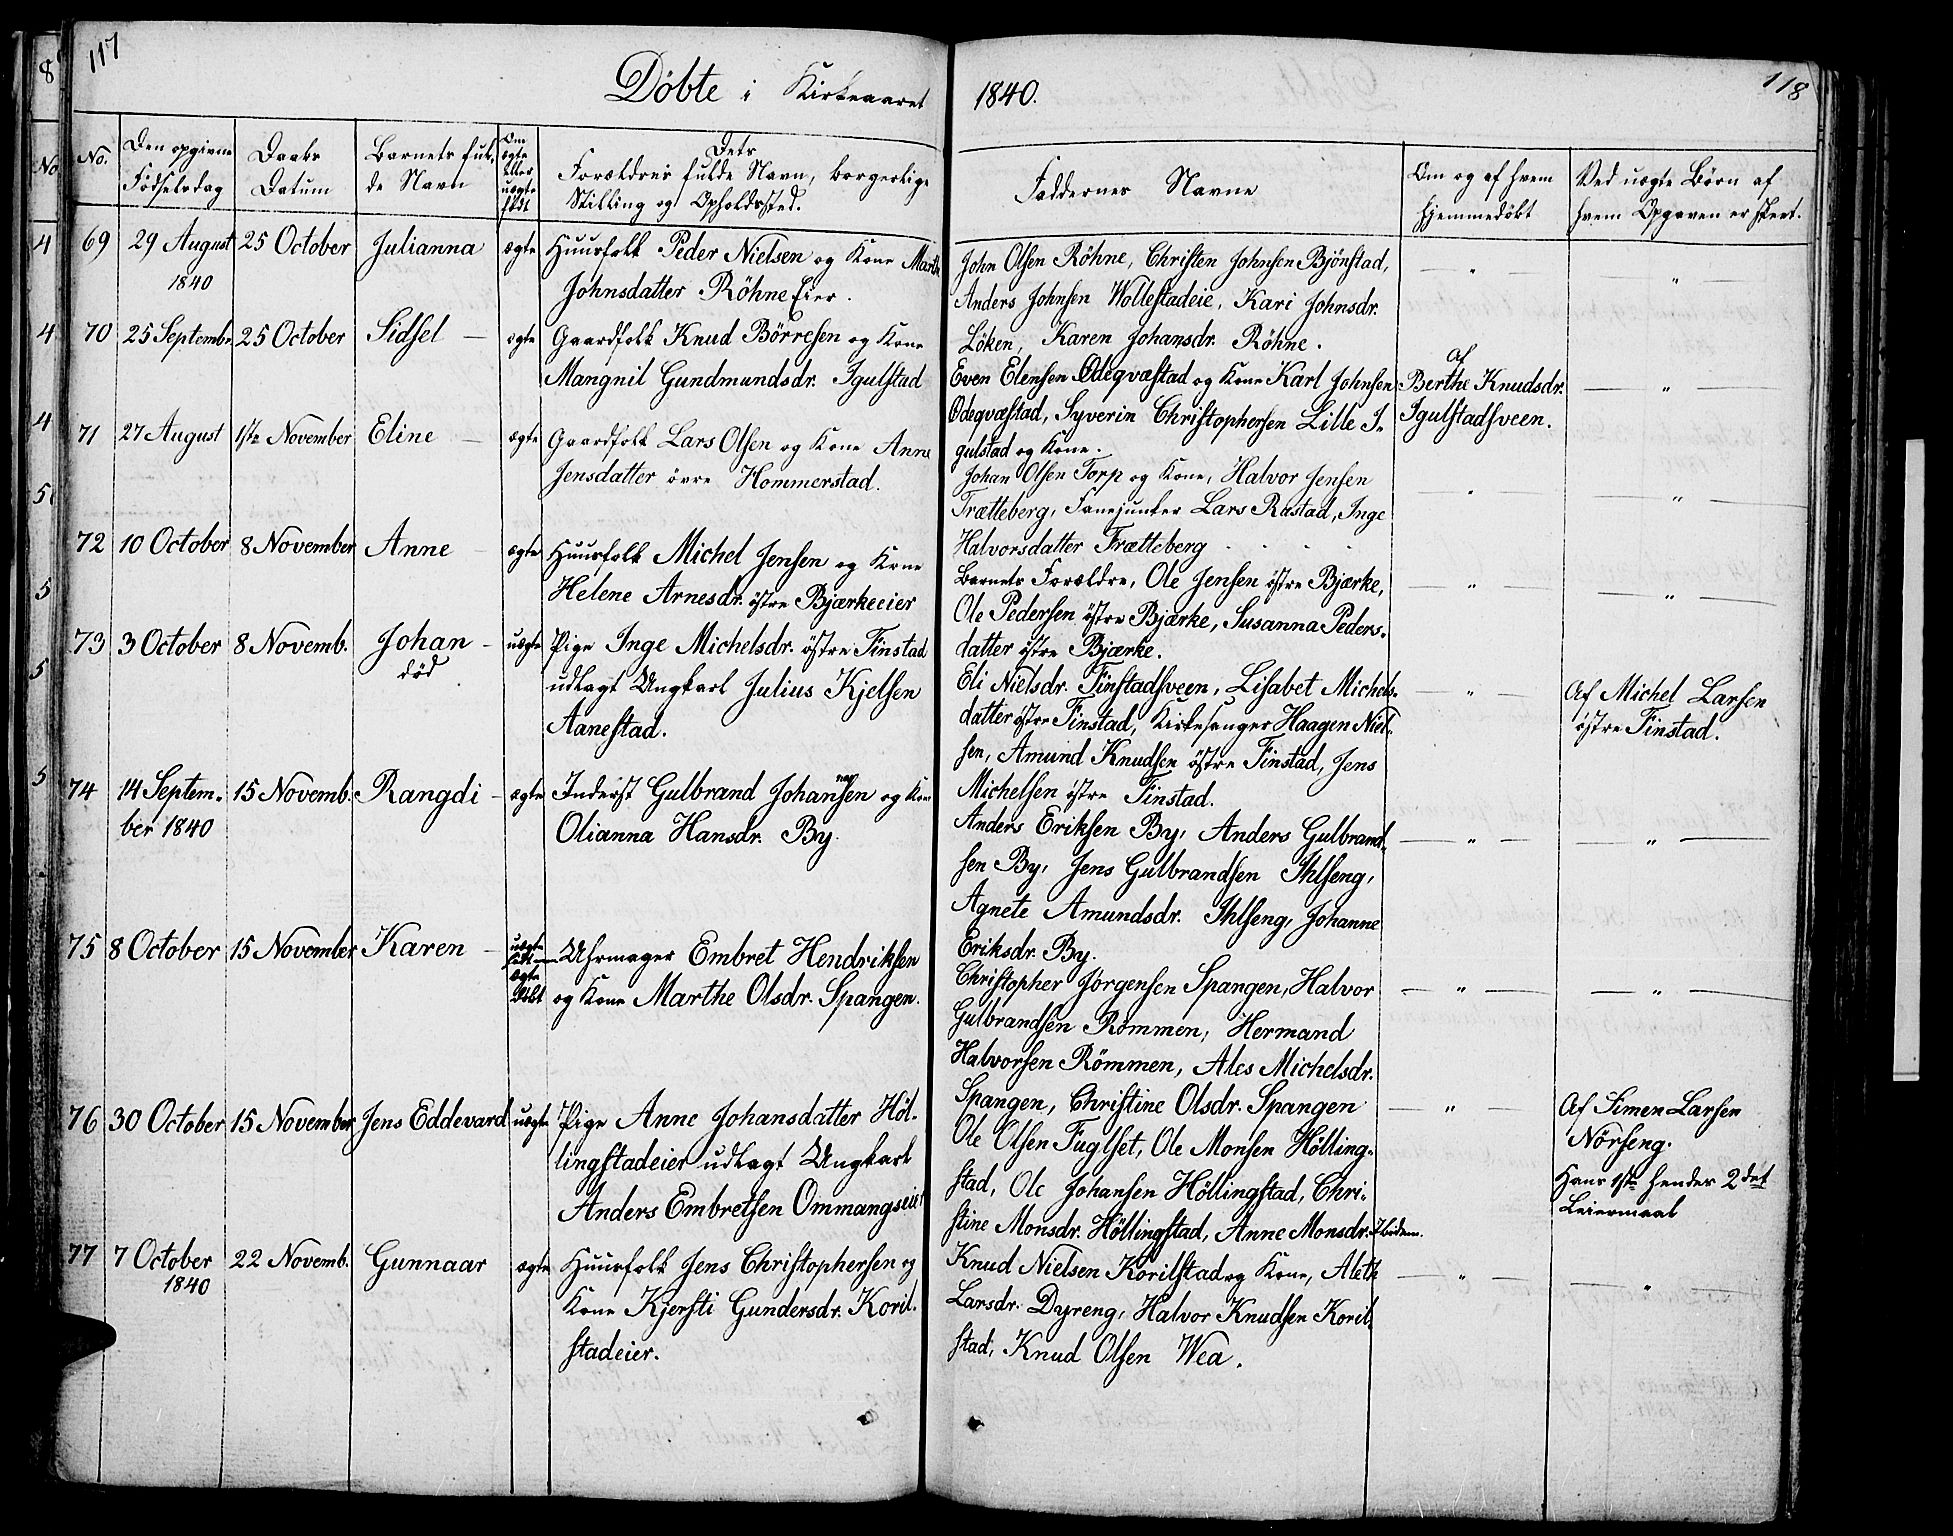 117
Döbte i Kirkeaaret
No.
Den opgivne Födselsdag
Daabs Datum
Barnets fulde Navn
Om ægte eller uægte födt
Dets Forældres fulde Navn, borgerlige Stilling og Opholdssted.
69 29 August 1840 25 October Julianna ægte Huusfolk Peder Nielsen og Kone Marthe
Johnsdatter Röhne Eier.
70 25 Septembr. 25 October Sidsel — ægte Gaardfolk Knud Börresen og Kone
Mangnil Gundmundsdr. Igulstad
71 27 August 1ste November Eline — ægte Gaardfolk Lars Olsen og Kone Anne
Jensdatter övre Hommerstad.
72 10 October 8 November Anne — ægte Huusfolk Michel Jensen og Kone
Helene Arnesdr. östre Bjærkeeier
73 3 October 8 Novemb. Johan — uægte Pige Inge Michelsdr. östre Finstad
död
udlagt Ungkarl Julius Kjelsen
Aanestad.
74 14 Septem- 15 Novemb. Rangdi — ægte Inderst Gulbrand Johansen og Kone
ber 1840 Olianna Hansdr. By.
75 8 October 15 November Karen — uægte födt ægte döbt Uhrmager Embret Hendriksen
og Kone Marthe Olsdr. Spangen.
76 30 October 15 November Jens Eddevard uægte Pige Anne Johansdatter Höl-
lingstadeier udlagt Ungkarl
Anders Embretsen Ommangseier
77 7 October 22 Novemb. Gunnaar ægte Huusfolk Jens Christophersen og
1840 Kone Kjersti Gundersdr. Koril-
stadeier.
8
No
4
4
4
5
5
5
5
118
1840.
Faddernes Navne
Om og af hvem hjemmedöbt
Ved uægte Börn af hvem Opgaven er skeet.
John Olsen Röhne, Christen Johnsen Bjönstad,
Anders Johnsen Wollestadeie, Kari Johnsdr.
Löken, Karen Johansdr. Röhne.
Even Elensen Ödeqvæstad og Kone Karl Johnsen
Ödeqvæstad, Syverin Christophersen Lille I-
gulstad og Kone.
af
Berthe Knudsdr.
Igulstadsveen.
Johan Olsen Torp og Kone, Halvor Jensen
Trætteberg, Fanejunker Lars Rastad, Inge
Halvorsdatter Trætteberg
Barnets Forældre, Ole Jensen östre Bjærke,
Ole Pedersen östre Bjærke, Susanna Peders-
datter östre Bjærke.
Eli Nielsdr. Finstadsveen, Lisabet Michels-
datter östre Finstad, Kirkesanger Haagen Niel-
sen, Amund Knudsen östre Finstad, Jens
Michelsen östre Finstad.
Af Michel Larsen
östre Finstad.
Anders Eriksen By, Anders Gulbrand-
sen By, Jens Gulbrandsen Ihlseng,
Agnete Amundsdr. Ihlseng, Johanne
Eriksdr. By.
Christopher Jörgensen Spangen, Halvor
Gulbrandsen Römmen, Hermand
Halvorsen Römmen, Ales Michelsdr.
Spangen, Christine Olsdr. Spangen
Ole Olsen Fuglset, Ole Monsen Hölling-
stad, Ole Johansen Höllingstad, Chri-
stine Monsdr. Höllingstad, Anne Monsdr. Ibidem.
Af Simen Larsen
Nörseng.
Hans 1ste hendes 2det
Leiermaal
Knud Nielsen Korilstad og Kone, Aleth
Larsdr. Dyreng, Halvor Knudsen Koril-
stad, Knud Olsen Wea.